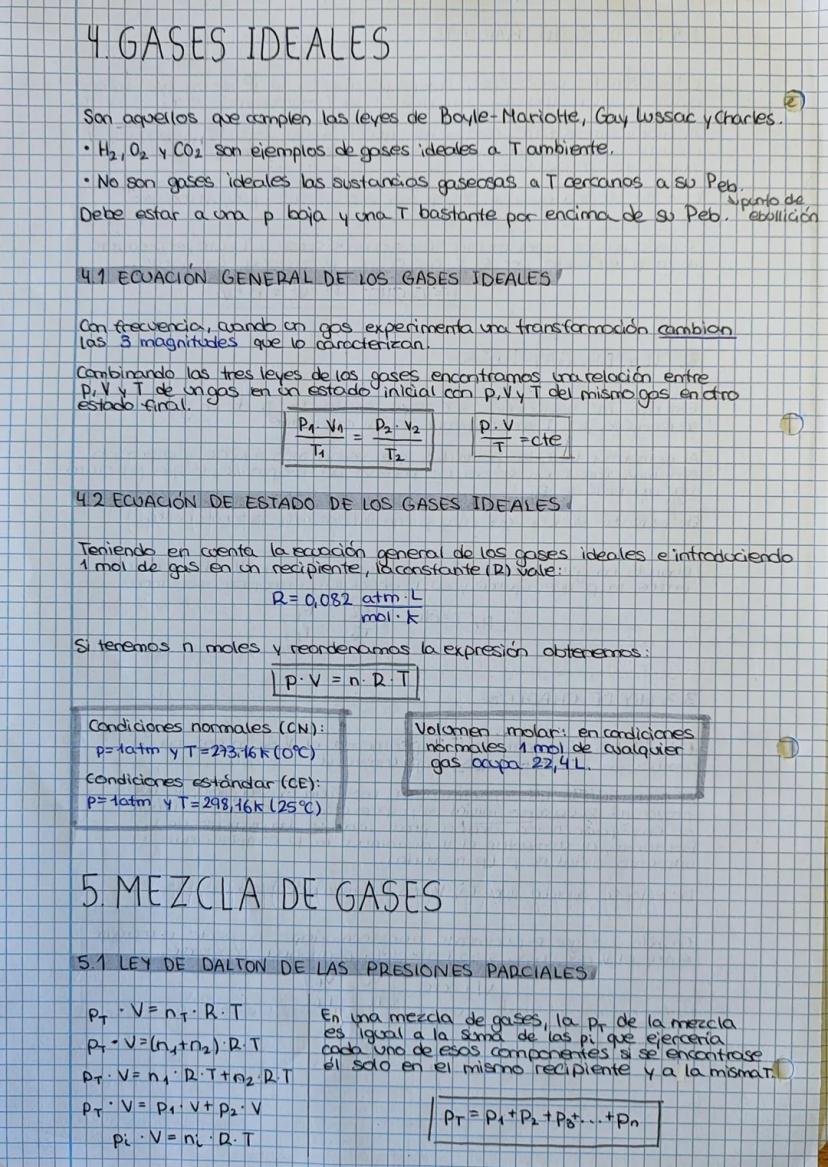 4. GASES IDEALES
Son aquellos que cumplen las leyes de Boyle-Mariotte, Gay Lussac y Charles.
• H₂, O₂ y CO₂ son ejemplos de gases ideales a T ambiente.
• No son gases ideales las sustancias gaseosas a T cercanos a su Peb.
↳ punto de ebollición
Debe estar a una p baja y una T bastante por encima de su Peb.
4.1 ECUACIÓN GENERAL DE LOS GASES IDEALES
Con frecuencia, cuando un gas experimenta una transformación cambian
las 3 magnitudes que lo caracterizan.
Combinando las tres leyes de los gases encontramos una relación entre
P, V y T de un gas en un estado inicial con p, V y T del mismo gas en otro
estado final.
P₁ · V₁ / T₁ = P₂ · V₂ / T₂
P · V / T = cte
4.2 ECUACIÓN DE ESTADO DE LOS GASES IDEALES
Teniendo en cuenta la ecuación general de los gases ideales e introduciendo
1 mol de gas en un recipiente, la constante (R) vale:
R = 0,082 atm · L / mol · K
Si tenemos n moles y reordenamos la expresión obtenemos:
p · V = n · R · T
Condiciones normales (CN):
p=1atm y T=273,16 K (0°C)
Condiciones estándar (CE):
p=1atm y T=298,16K (25°C)
Volumen molar: en condiciones
normales 1 mol de cualquier
gas ocupa 22,4 L.
5. MEZCLA DE GASES
5.1 LEY DE DALTON DE LAS PRESIONES PARCIALES
P_T · V = n_T · R · T
P_T · V = (n₁+n₂) · R · T
P_T · V = n₁ · R · T + n₂ · R · T
P_T · V = P₁ · V + P₂ · V
Pi · V = ni · R · T
En una mezcla de gases, la P_T de la mezcla
es igual a la suma de las pi que ejercería
cada uno de esos componentes si se encontrase
él solo en el mismo recipiente y a la misma T.
P_T = P₁ + P₂ + P₃ + ... + Pn